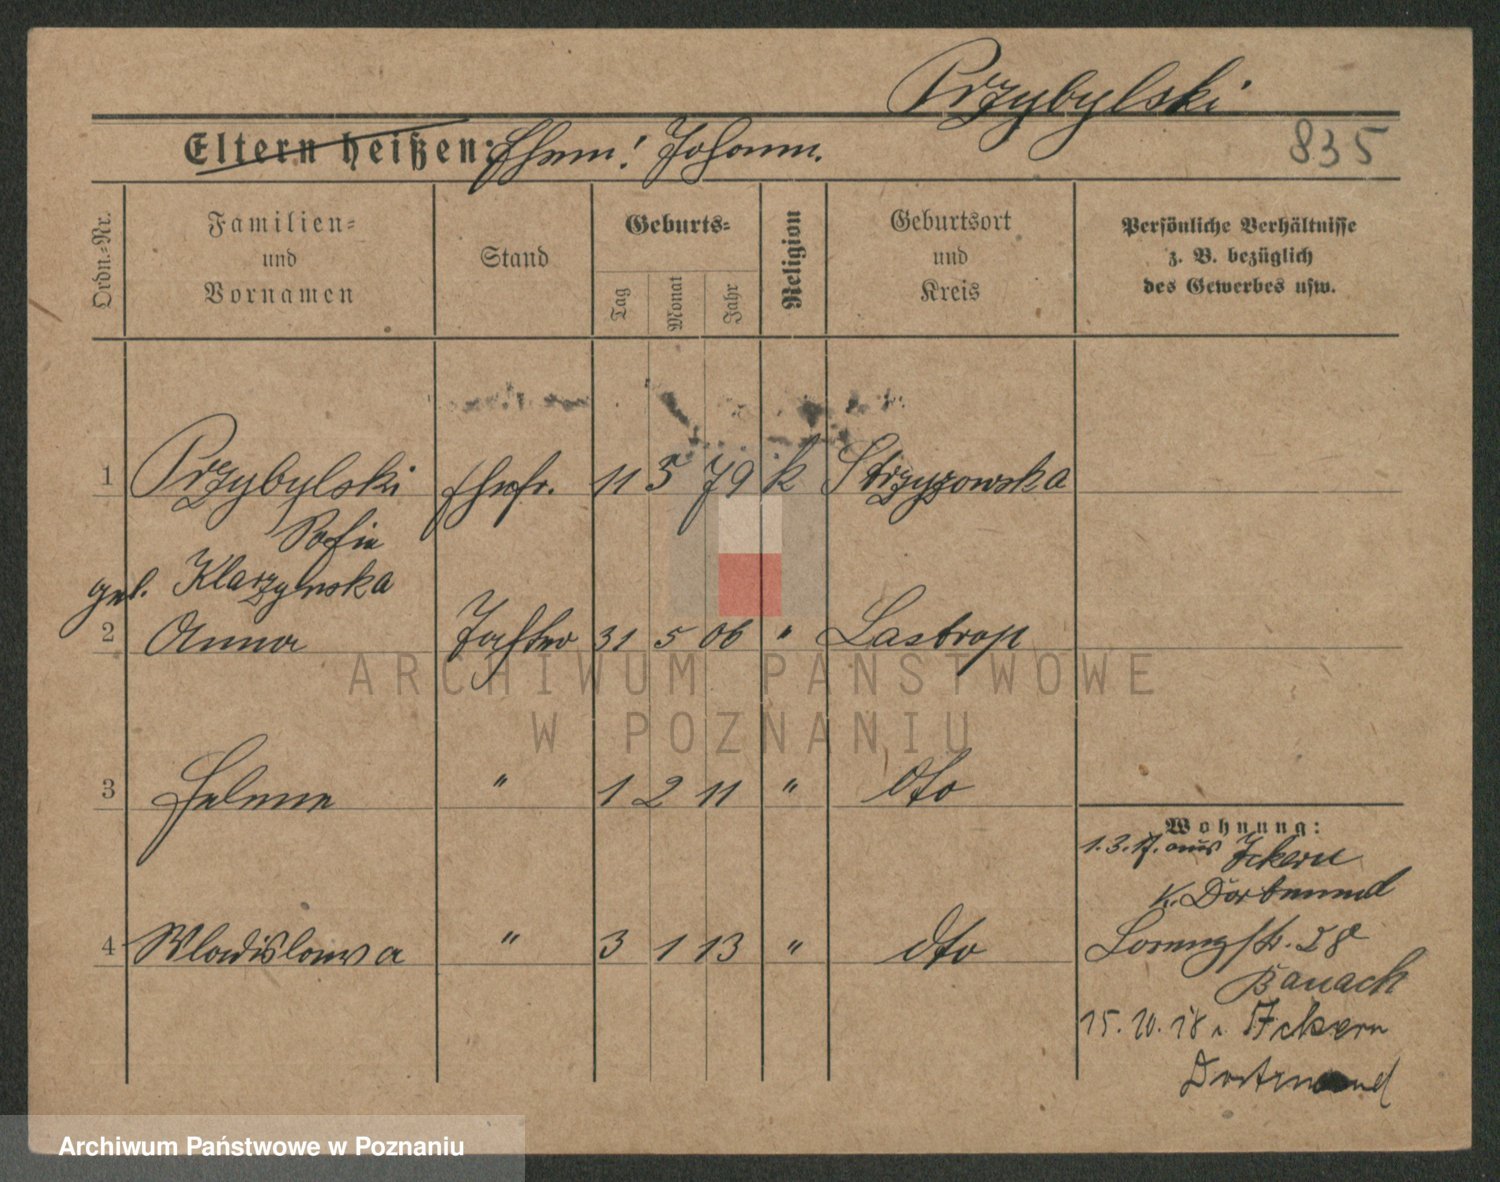 Przybylski
835
Eltern heißen: Ehem: Johann.
Ordn.-Nr.
Familien- und Vornamen
Stand
Geburts-
Tag
Monat
Jahr
Religion
Geburtsort und Kreis
Persönliche Verhältnisse
z. B. bezüglich
des Gewerbes usw.
1 Przybylski Ehefr. 11 5 79 k Strzyzowska
Sofie
geb. Klarzynska
2 Anna Tochter 31 5 06 " Lastrop
3 Helene " 1 2 11 " dto
4 Wladislawa " 3 1 13 " dto
Wohnung:
1.3.17. aus Ickern
K. Dortmund
28
Banach
15.10.18 n. Ickern
Dortmund
ARCHIWUM PAŃSTWOWE
W POZNANIU
Archiwum Państwowe w Poznaniu